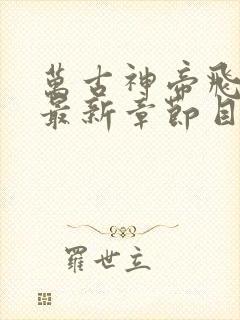 萬古神帝飛
最新章節目
羅世立